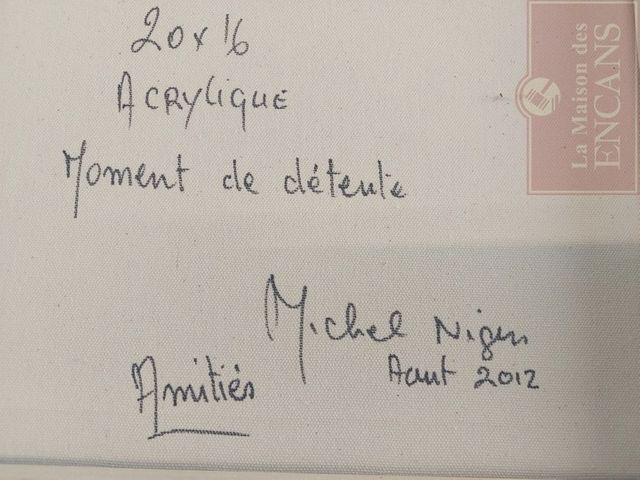 20 x 16
ACRYLIQUE
Moment de détente
La Maison des
ENCANS
Michel Nigen
Aout 2012
Amitiés